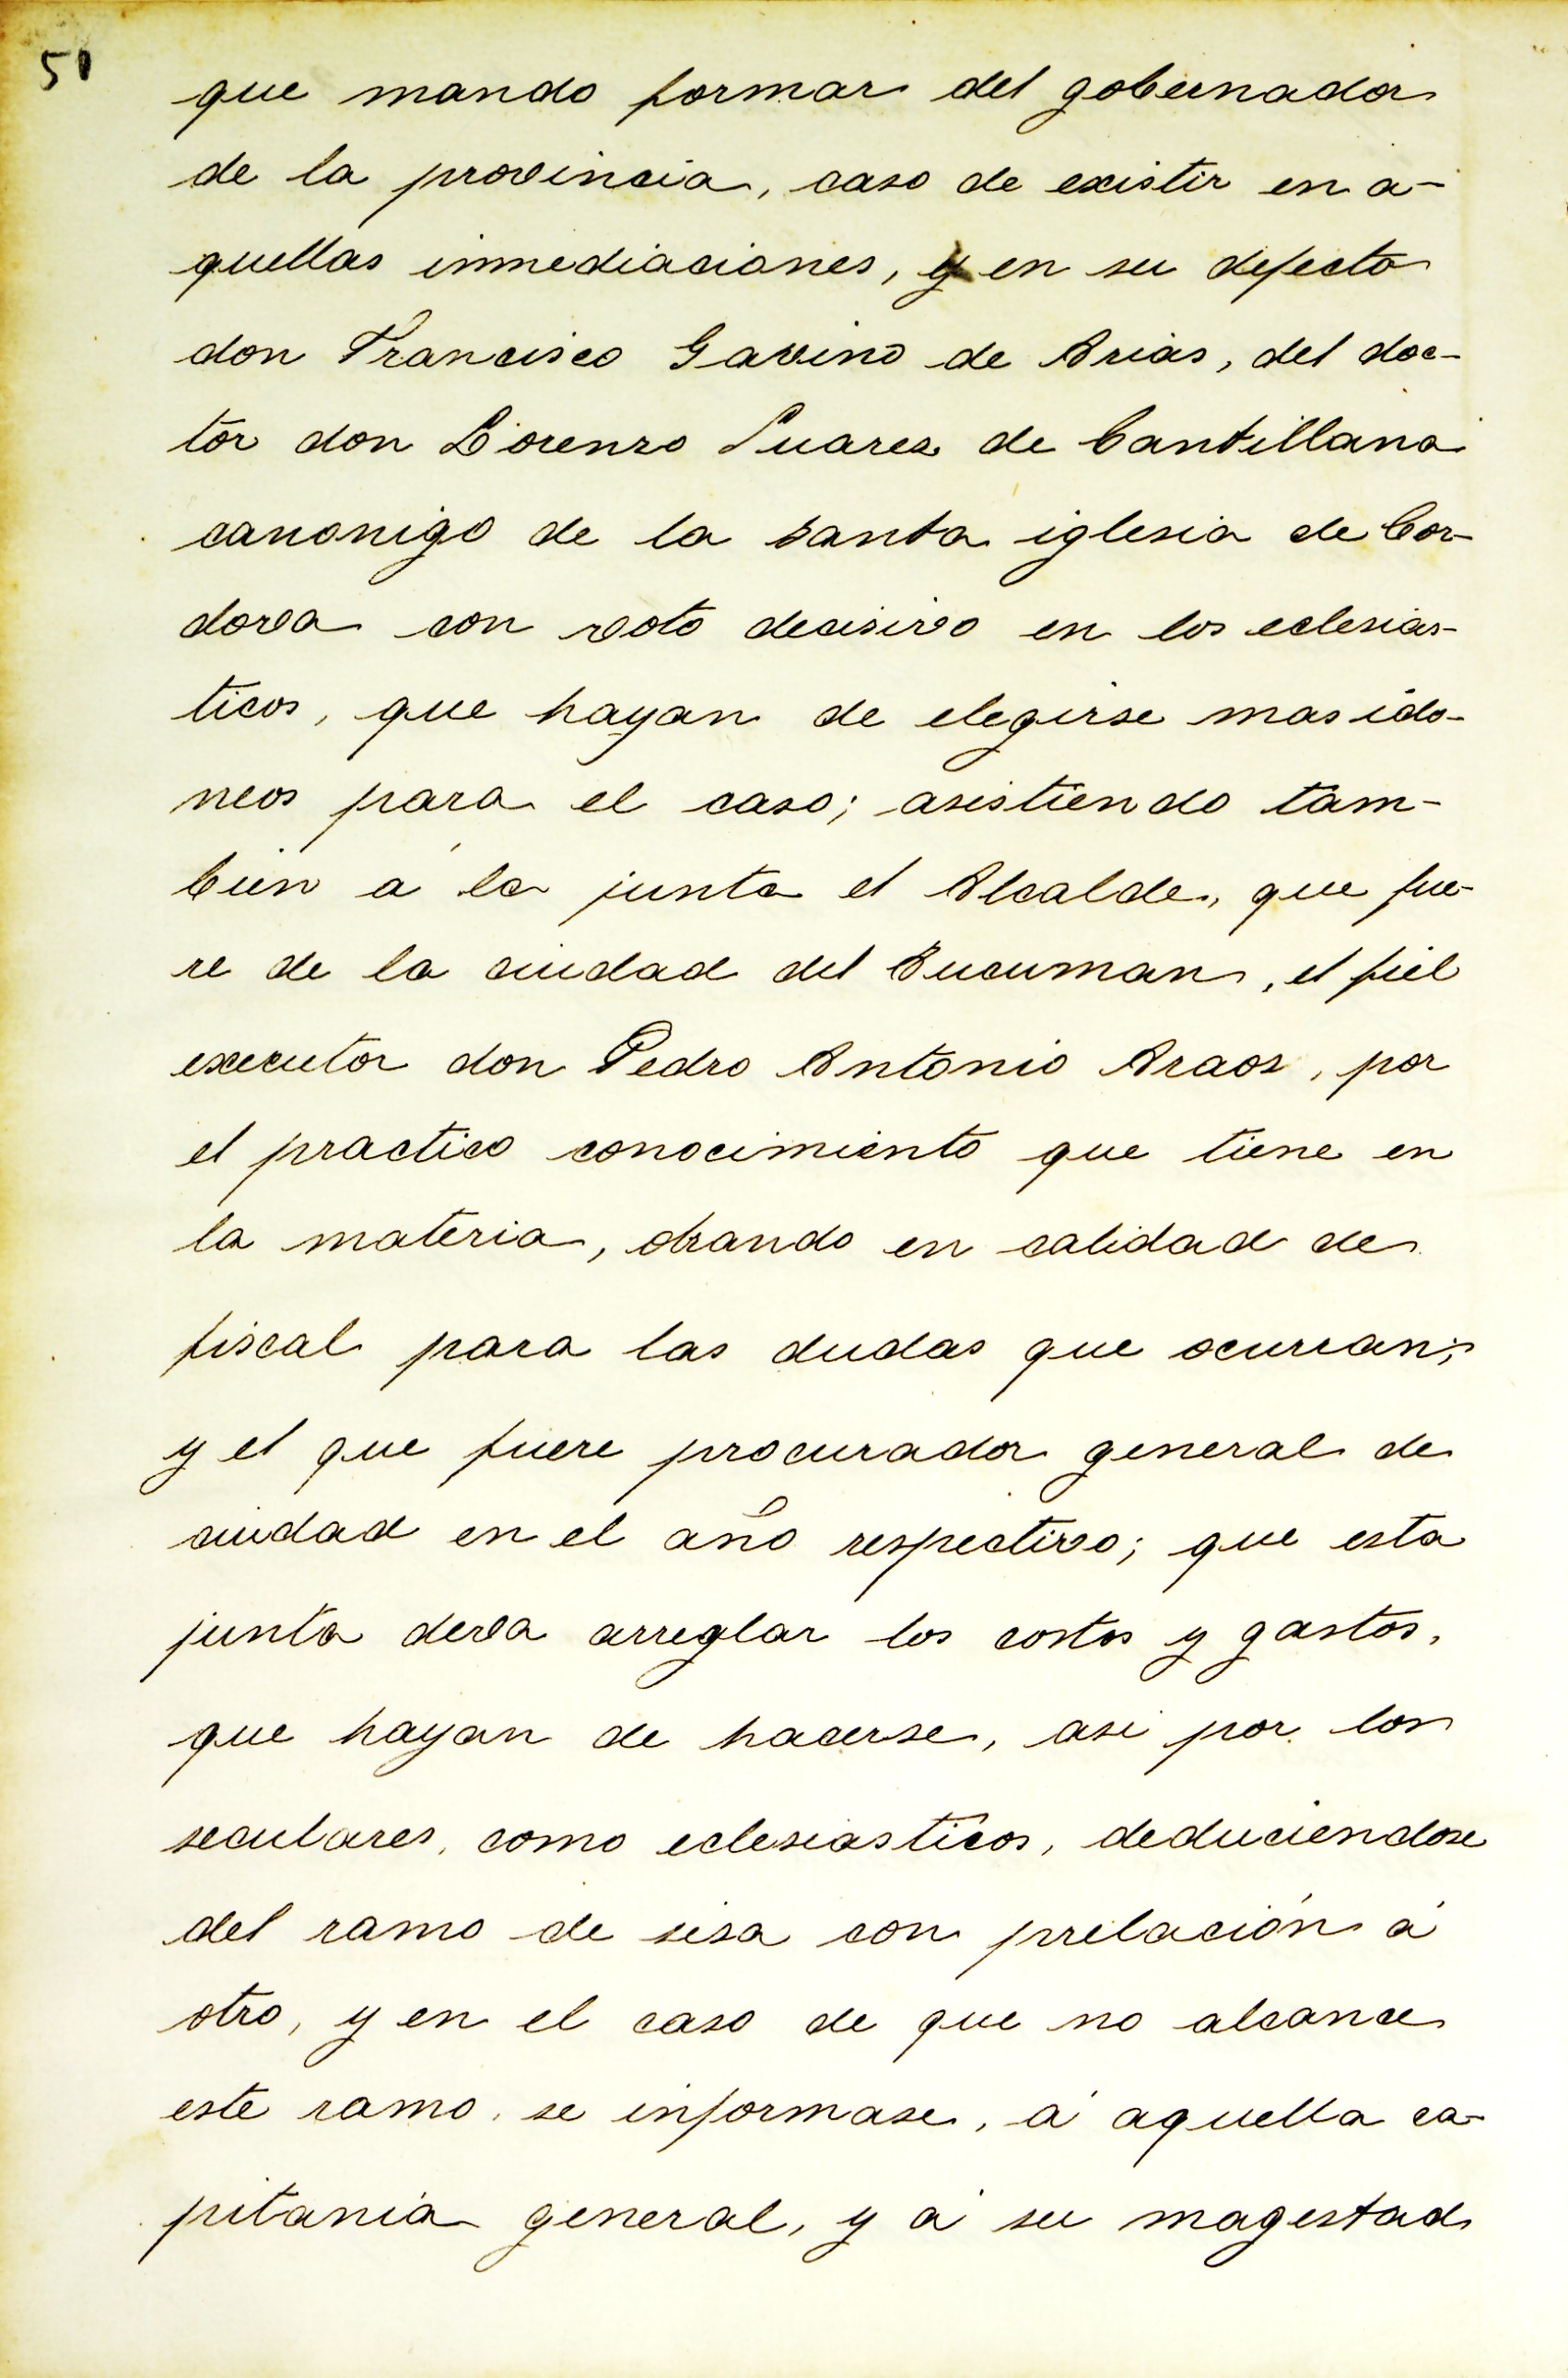 50
que mando formar del gobernador
de la provincia, caso de existir en a-
quellas inmediaciones, y en su defecto
don Francisco Gavino de Arias, del doc-
tor don Lorenzo Suarez de Cantillana
canonigo de la santa iglesia de Cor-
dova con voto decisivo en los eclesias-
ticos, que hayan de elegirse mas ido-
neos para el caso; asistiendo tam-
bien á la junta el Alcalde, que fue-
re de la ciudad del Tucuman, el fiel
executor don Pedro Antonio Araoz, por
el practico conocimiento que tiene en
la materia, obrando en calidad de
fiscal para las dudas que ocurran;
y el que fuere procurador general de
ciudad en el año respectivo; que esta
junta deva arreglar los costos y gastos,
que hayan de hacerse, asi por los
seculares, como eclesiasticos, deduciendose
del ramo de sisa con prelación á
otro, y en el caso de que no alcance
este ramo, se informase, á aquella ca-
pitania general, y á su magestad